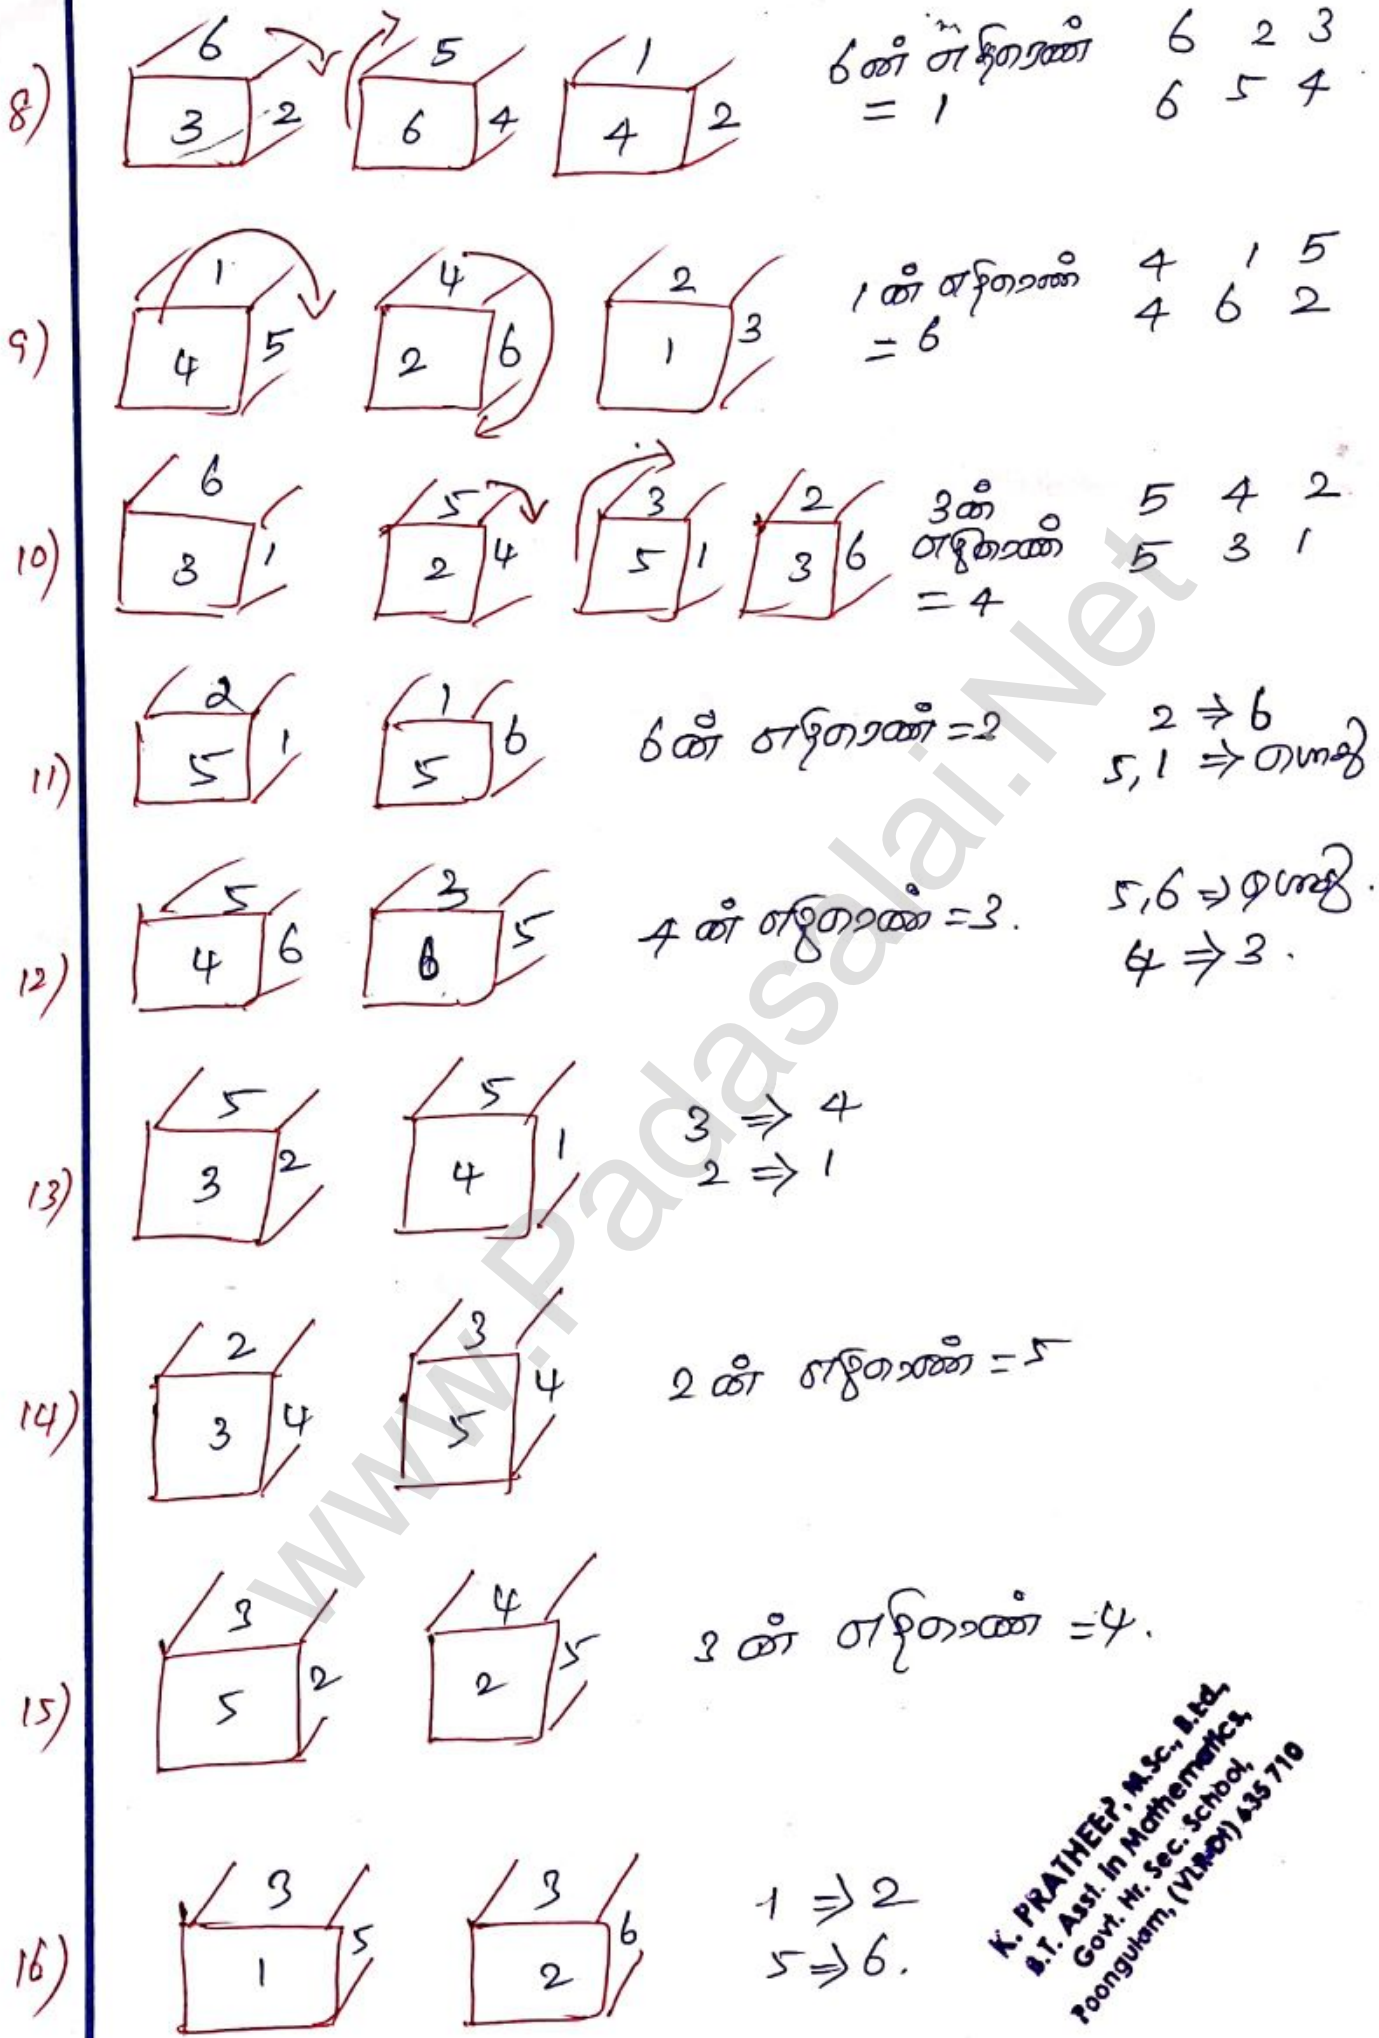 8)
6
3 2
5
6 4
1
4 2
6ன் எதிரெண்
= 1
6 2 3
6 5 4
9)
1
4 5
4
2 6
2
1 3
1ன் எதிரெண்
= 6
4 1 5
4 6 2
10)
6
3 1
5
2 4
3
5 1
2
3 6
3ன்
எதிரெண்
= 4
5 4 2
5 3 1
11)
2
5 1
1
5 6
6ன் எதிரெண் = 2
2 ⇒ 6
5, 1 ⇒ பொது
12)
5
4 6
3
6 5
4ன் எதிரெண் = 3.
5, 6 ⇒ பொது.
4 ⇒ 3.
13)
5
3 2
5
4 1
3 ⇒ 4
2 ⇒ 1
14)
2
3 4
3
5 4
2ன் எதிரெண் = 5
15)
3
5 2
4
2 5
3ன் எதிரெண் = 4.
16)
3
1 5
3
2 6
1 ⇒ 2
5 ⇒ 6.
K. PRATHEEP, M.Sc., B.Ed,
B.T. Asst. in Mathematics,
Govt. Hr. Sec. School,
Poongulam, (VLR-Dt) 635 710
www.Padasalai.Net